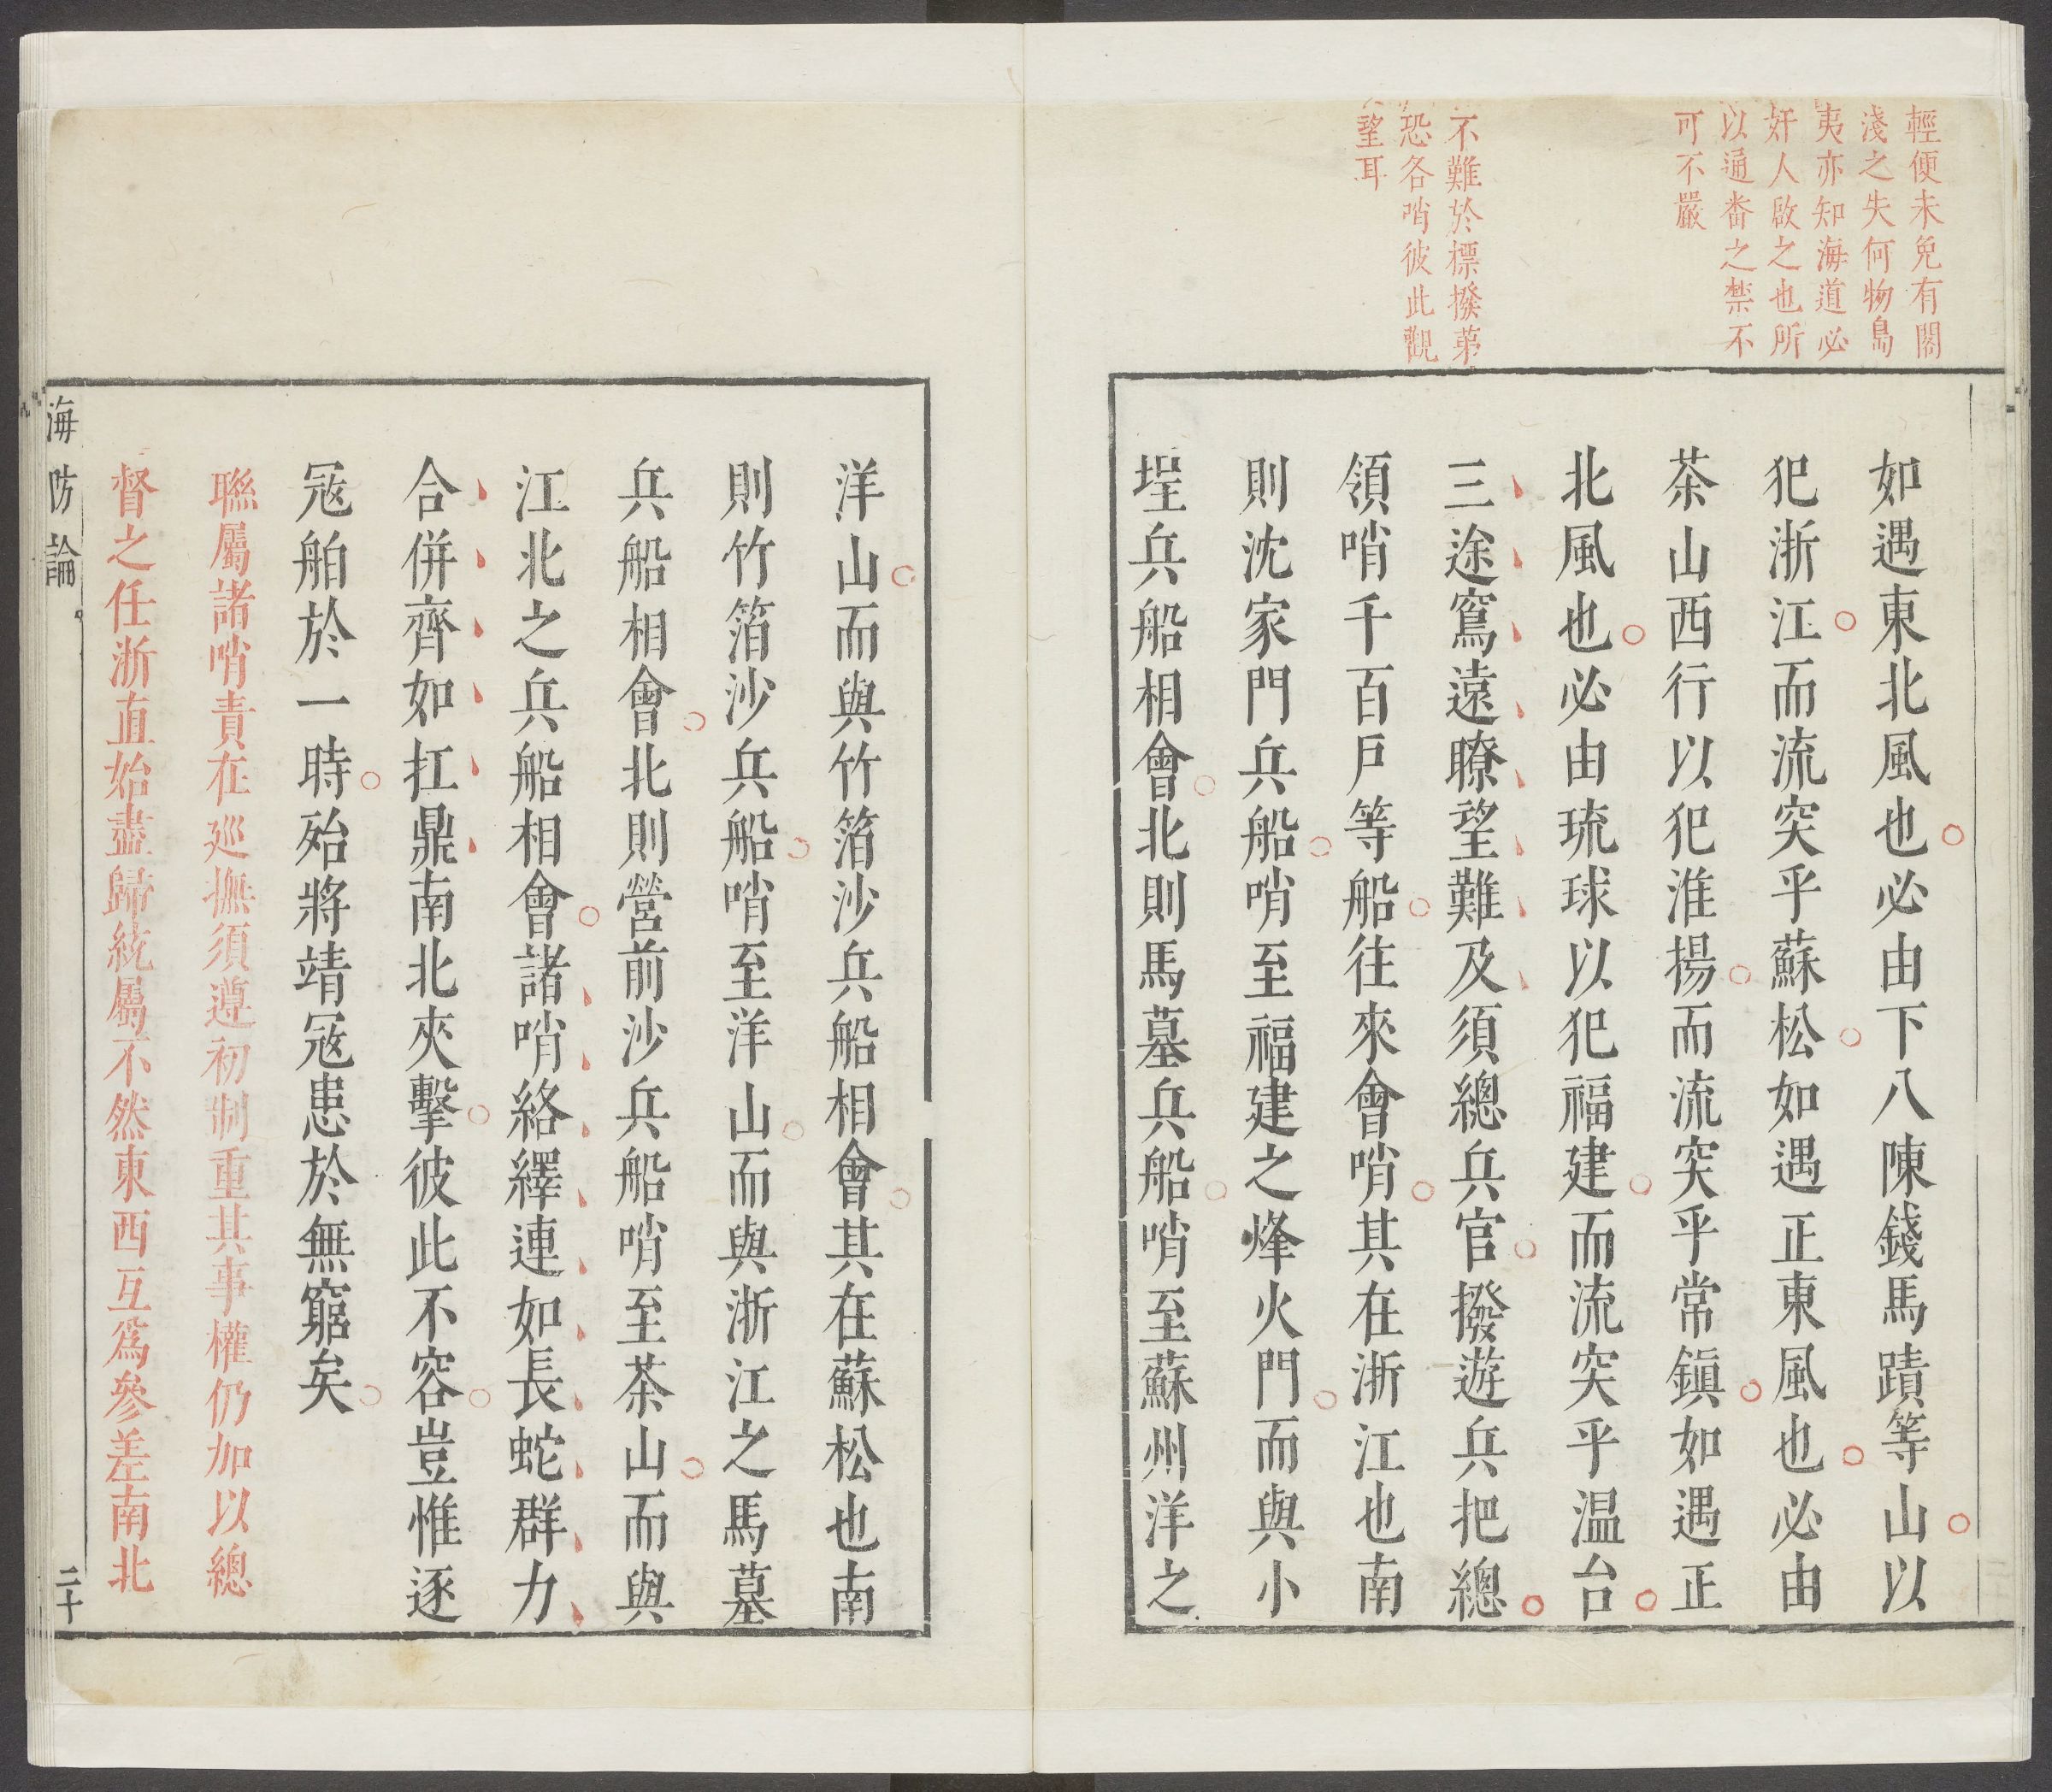 輕便未免有闊
淺之失何物島
夷亦知海道必
奸人啟之也所
以通畨之禁不
可不嚴
不難於標撥苐
恐各哨彼此觀
望耳
如遇東北風也必由下八陳錢馬蹟等山以
犯浙江而流突乎蘇松如遇正東風也必由
茶山西行以犯淮揚而流突乎常鎭如遇正
北風也必由琉球以犯福建而流突乎温台
三途窵遠瞭望難及須總兵官撥遊兵把總
領哨千百戶等船往來會哨其在浙江也南
則沈家門兵船哨至福建之烽火門而與小
埕兵船相會北則馬墓兵船哨至蘇州洋之
洋山而與竹箔沙兵船相會其在蘇松也南
則竹箔沙兵船哨至洋山而與浙江之馬墓
兵船相會北則營前沙兵船哨至茶山而與
江北之兵船相會諸哨絡繹連如長蛇群力
合併齊如扛鼎南北夾擊彼此不容豈惟逐
冦舶於一時殆將靖冦患於無窮矣
聮屬諸哨責在廵撫須遵初制重其事權仍加以總
督之任浙直始盡歸統屬不然東西互爲參差南北
海防論
二十